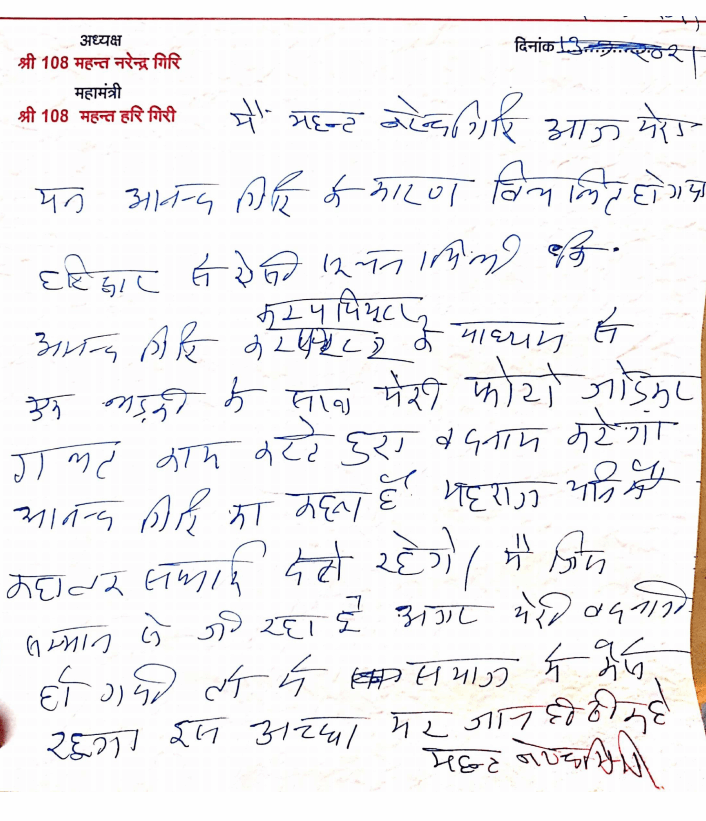 अध्यक्ष
श्री 108 महन्त नरेन्द्र गिरि
महामंत्री
श्री 108 महन्त हरि गिरी
दिनांक 13
मैं महन्त नरेन्द्र गिरि आज मेरा
मन आनन्द गिरि के कारण विचलित हो गया
हरिद्वार से ऐसी सूचना मिली कि
कम्प्यूटर
आनन्द गिरि के माध्यम से
एक लड़की के साथ मेरी फोटो जोड़कर
गलत काम करते हुए बदनाम करेगा
आनन्द गिरि का कहना है महराज
कहाँ तक सफाई देते रहेंगे। मैं जिस
सम्मान से जी रहा हूँ अगर मेरी बदनामी
हो गयी तो मैं समाज में कैसे
रहूँगा इस अच्छा मर जाना ही ठीक है
महन्त नरेन्द्र गिरि